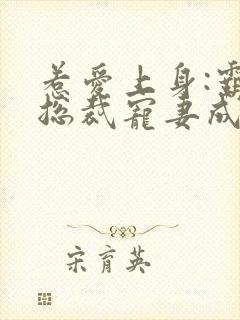 惹爱上身:霸
总裁宠妻成
宋育英